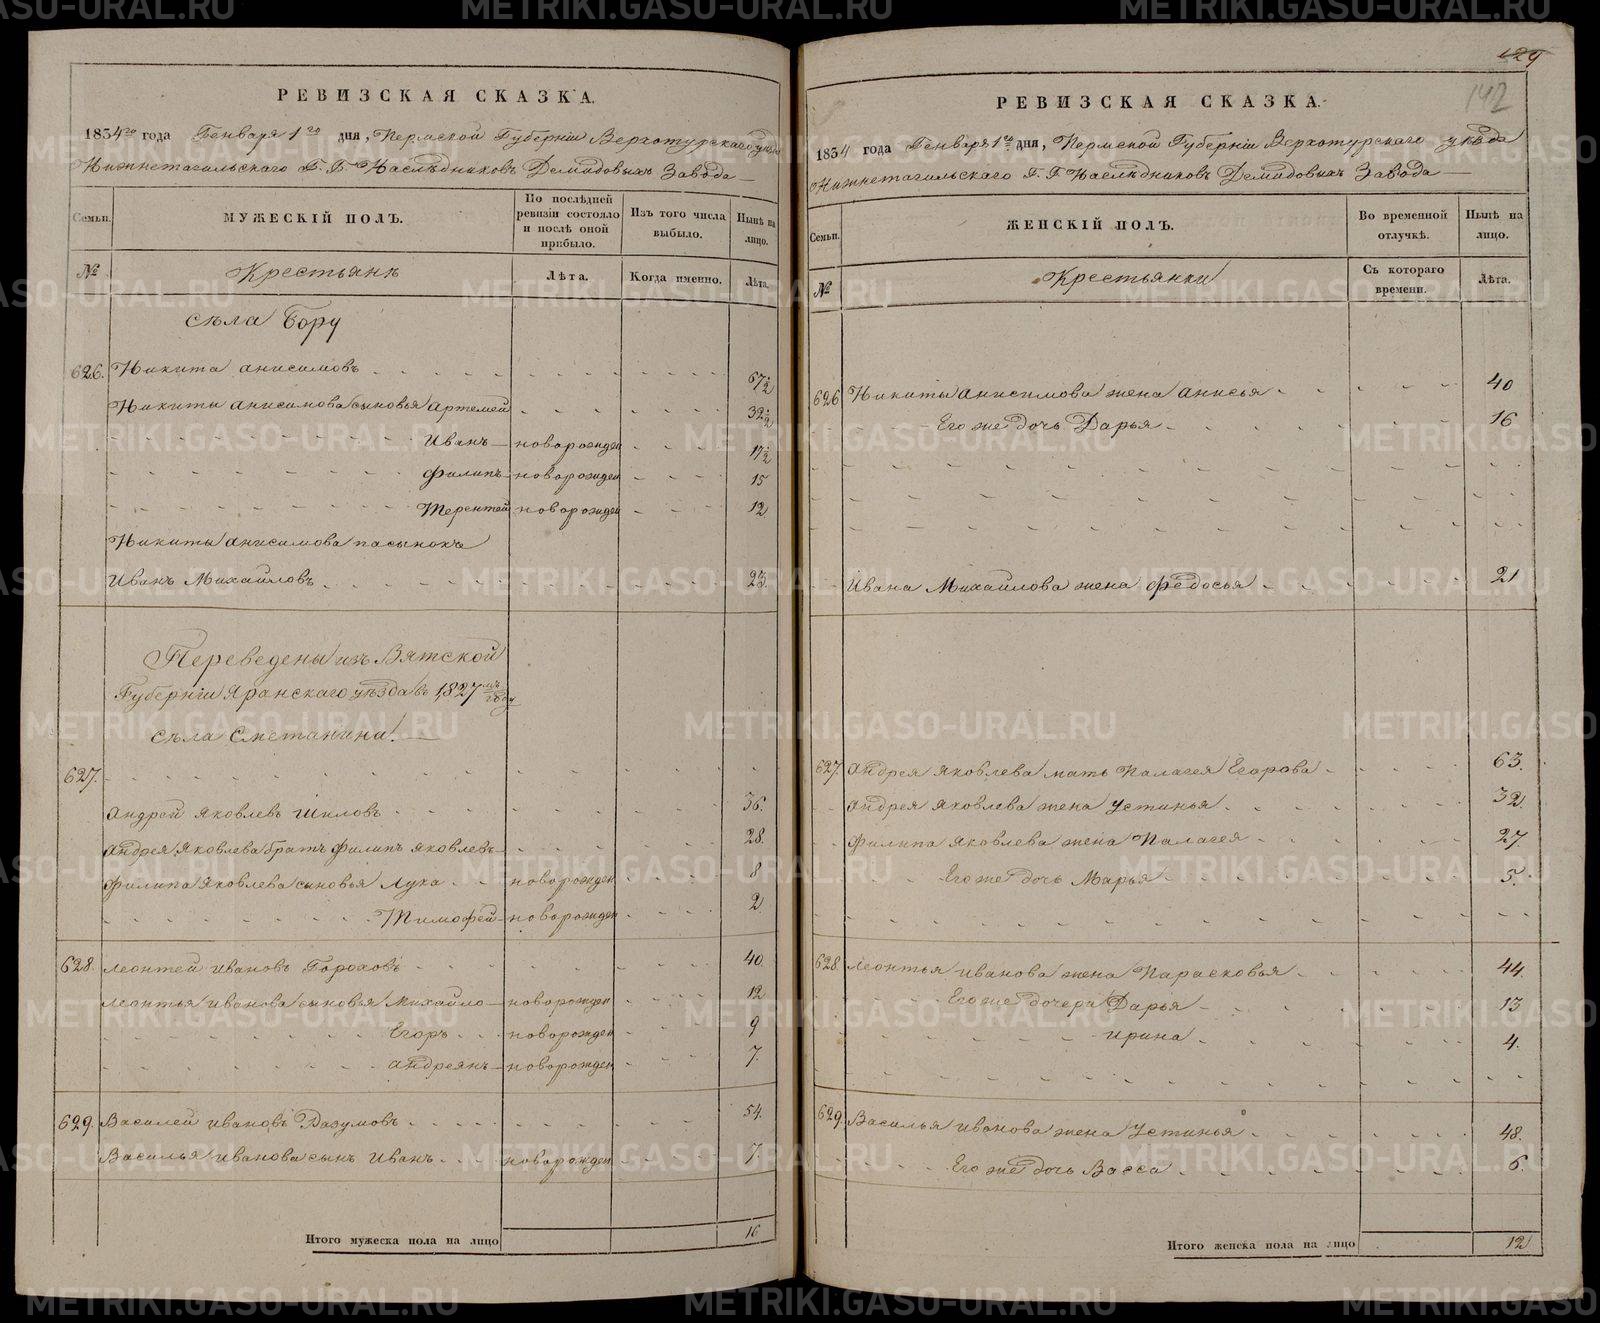 РЕВИЗСКАЯ СКАЗКА.
1834го года Генваря 1го дня, Пермской Губернiи Верхотурскаго уѣзда
Нижнетагильскаго Г. Г. Наслѣдниковъ Демидовыхъ Завода
Семьи.
МУЖЕСКIЙ ПОЛЪ.
По послѣдней ревизiи состояло и послѣ оной прибыло.
Изъ того числа выбыло.
Нынѣ на лицо.
№
Крестьянъ
Лѣта.
Когда именно.
Лѣта.
села Бору
626. Никита Анисимовъ 67½
Никиты Анисимова сыновья Артемей 32½
Иванъ новорожден 17½
Филипъ новорожден 15
Терентей новорожден 12
Никиты Анисимова пасынокъ
Иванъ Михайловъ 23.
Переведены изъ Вятской
Губернiи Яранскаго уѣзда въ 1827мъ году
села Сметанина.
627.
Андрей Яковлевъ Шиловъ 36.
Андрея Яковлева братъ Филипъ Яковлевъ 28.
Филипа Яковлева сыновья Лука новорожден 8
Тимофей новорожден 2
628. Леонтей Ивановъ Гороховъ 40.
Леонтья Иванова сыновья Михайло новорожден 12
Егоръ новорожден 9
Андреянъ новорожден 7.
629. Василей Ивановъ Разумовъ 54.
Василья Иванова сынъ Иванъ новорожден 7.
Итого мужеска пола на лицо 16
129
142
РЕВИЗСКАЯ СКАЗКА.
1834 года Генваря 1го дня, Пермской Губернiи Верхотурскаго уѣзда
Нижнетагильскаго Г. Г. Наслѣдниковъ Демидовыхъ Завода
Семьи.
ЖЕНСКIЙ ПОЛЪ.
Во временной отлучкѣ.
Нынѣ на лицо.
№
Крестьянки
Съ котораго времени.
Лѣта.
626 Никиты Анисимова жена Анисья 40
Его же дочь Дарья 16
Ивана Михайлова жена Федосья 21
627. Андрея Яковлева мать Палагея Егорова 63.
Андрея Яковлева жена Устинья 32.
Филипа Яковлева жена Палагея 27.
Его же дочь Марья 5.
628. Леонтья Иванова жена Парасковья 44.
Его же дочери Дарья 13
Ирина 4.
629. Василья Иванова жена Устинья 48.
Его же дочь Васса 6.
Итого женска пола на лицо 12
METRIKI.GASO-URAL.RU